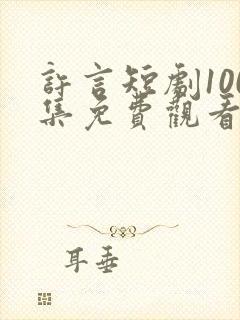 許言短劇100
集免費觀看
耳垂